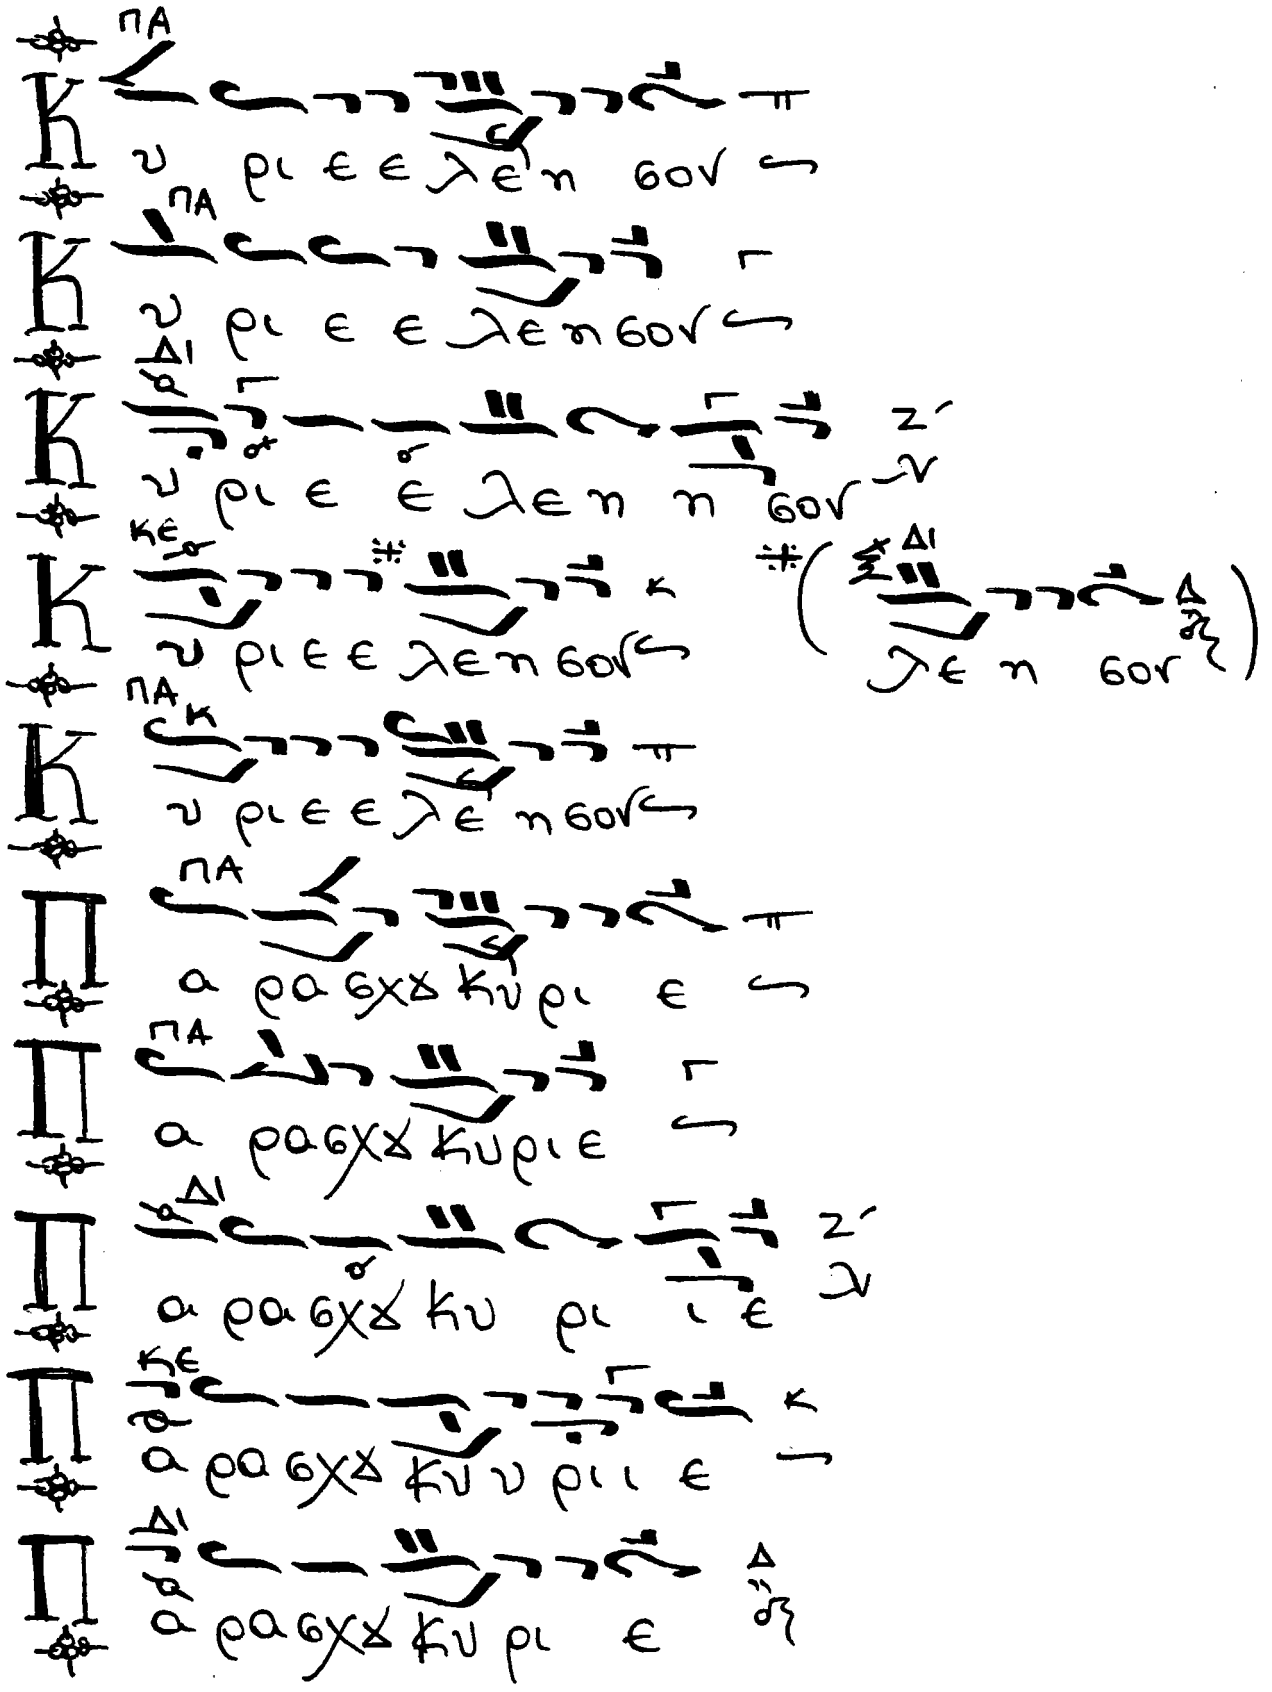 ΠΑ
Κυ ρι ε ε λέ η σον
ΠΑ
Κυ ρι ε ε λε η σον
ΔΙ
Κυ ρι ε ε λε η η σον
Ζ΄
ΚΕ
Κυ ρι ε ε λε η σον κ
ΔΙ
λε η σον Δ
ΠΑ
Κυ ρι ε ε λέ η σον
ΠΑ
Πα ρα σχȣ Κύ ρι ε
ΠΑ
Πα ρα σχȣ Κυ ρι ε
ΔΙ
Πα ρα σχȣ Κυ ρι ι ε
Ζ΄
ΚΕ
Πα ρα σχȣ Κυ υ ρι ι ε κ
ΔΙ
Πα ρα σχȣ Κυ ρι ε Δ